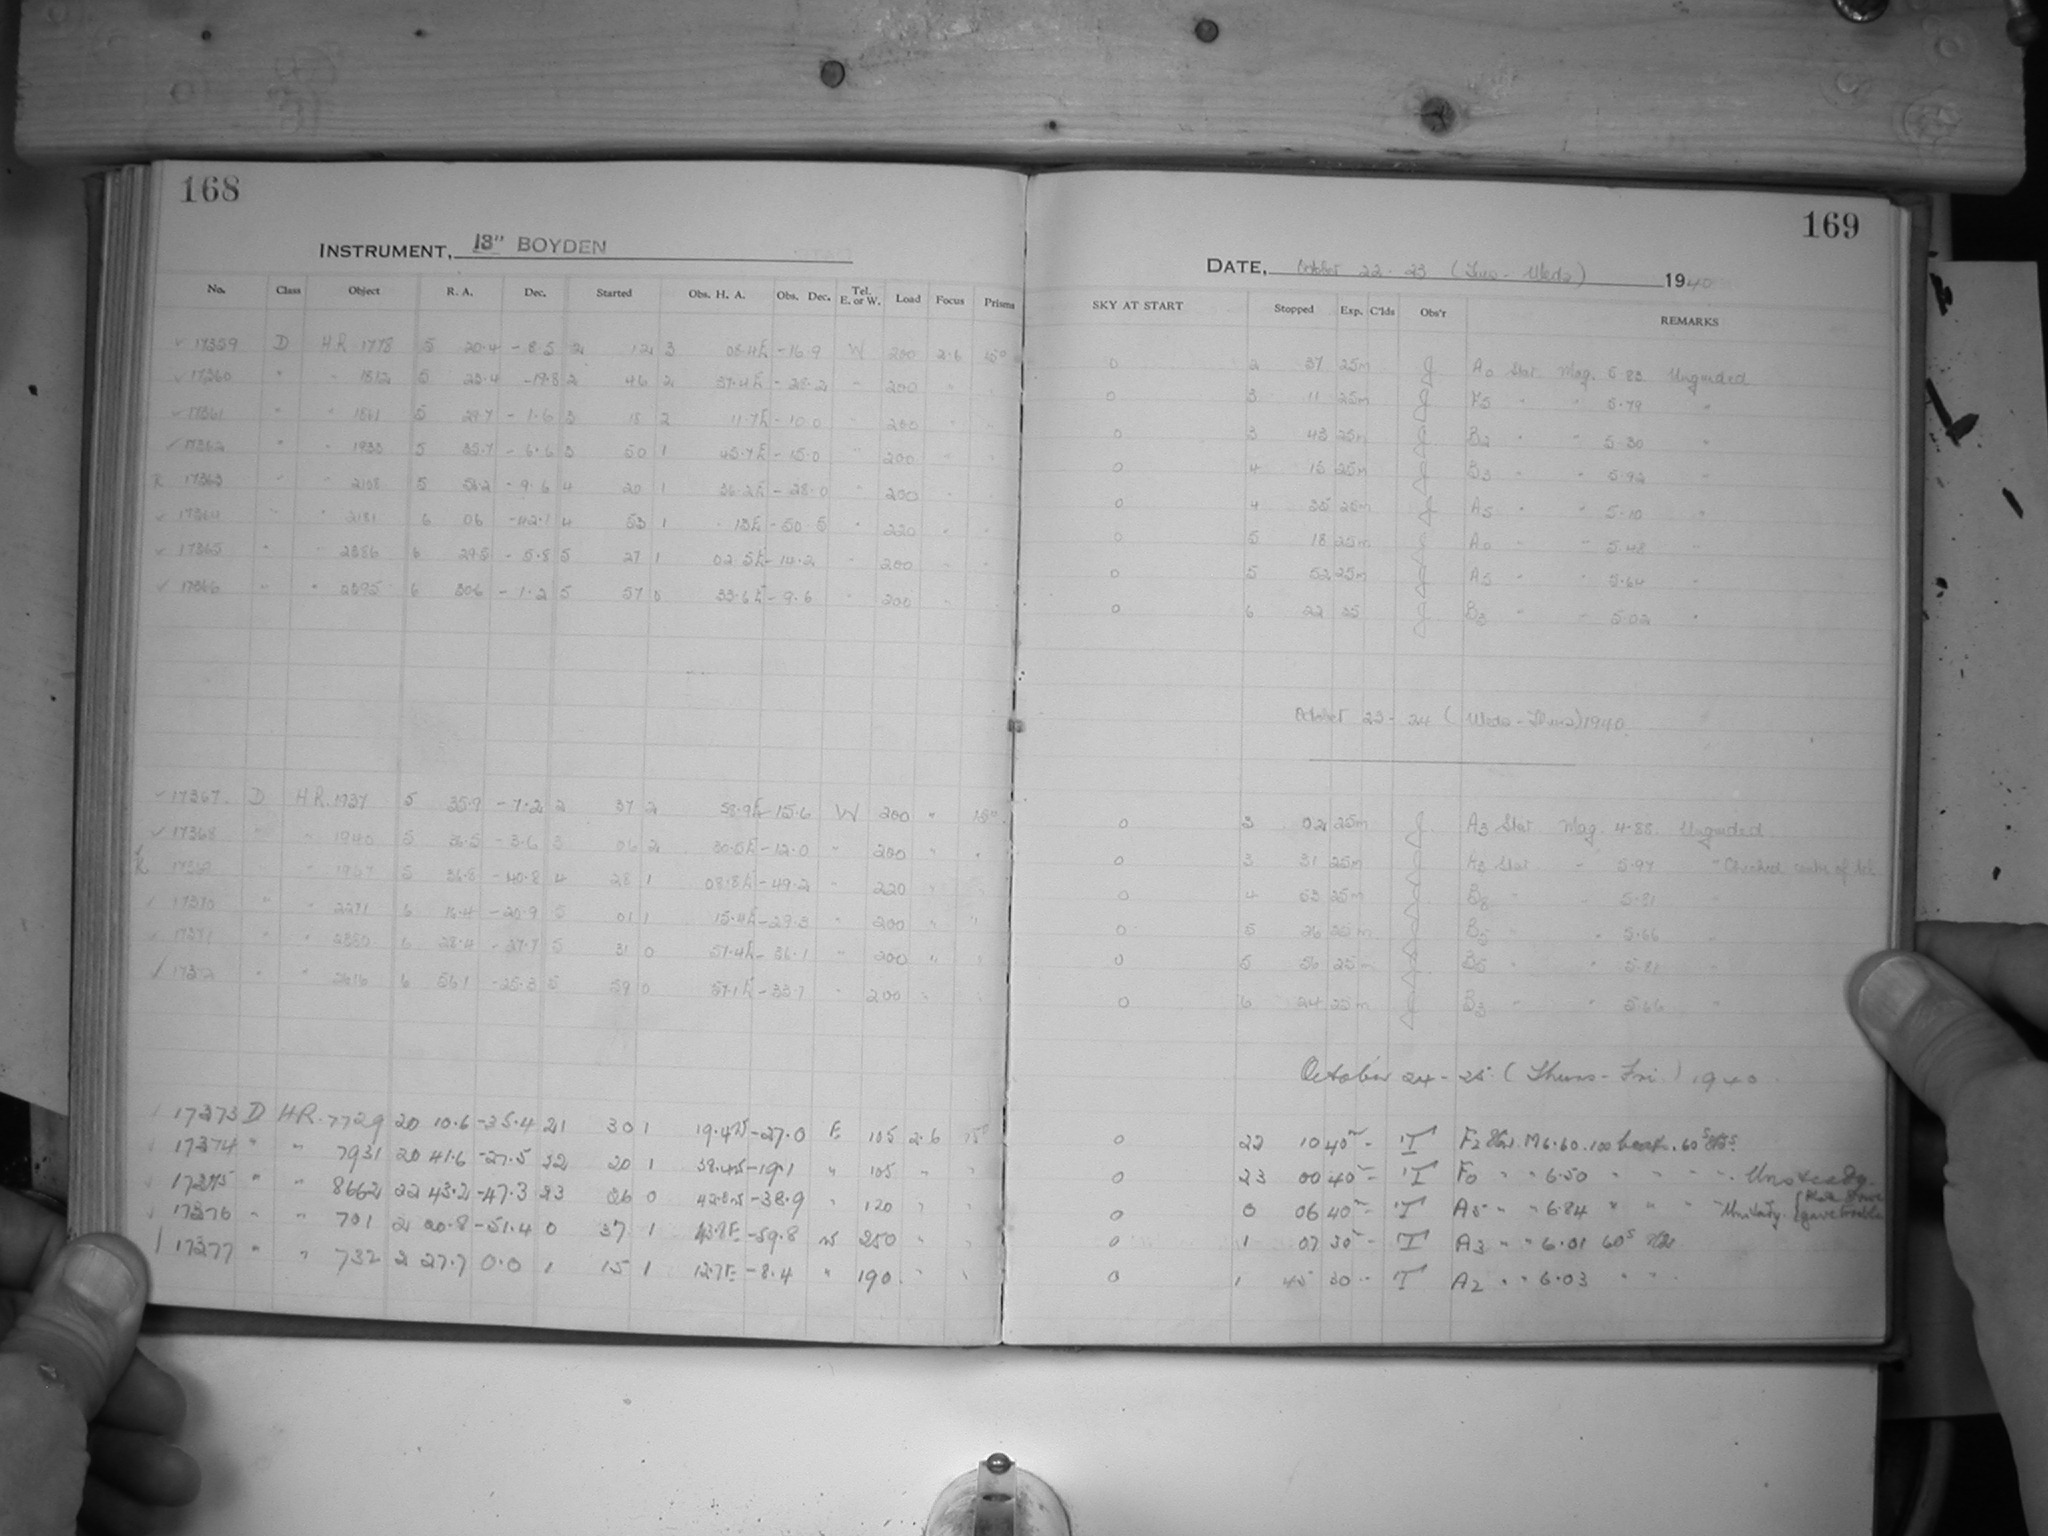 168
INSTRUMENT, 13" BOYDEN
No. Class Object R. A. Dec. Started Obs. H. A. Obs. Dec. Tel. E. or W. Load Focus Prisms
17359 D HR 1778 5 20.4 -8.5 2 12 3 08.4E -16.9 W 200 2.6 15°
17360 " " 1812 5 23.4 -19.8 2 46 2 37.4E -28.2 " 200 "
17361 " " 1861 5 29.7 -1.6 3 18 2 11.7E -10.0 " 200 "
17362 " " 1933 5 35.7 -6.6 3 50 1 45.7E -15.0 " 200 "
R 17363 " " 2108 5 56.2 -9.6 4 20 1 36.2E -28.0 " 200 "
17364 " " 2181 6 06 -42.1 4 53 1 13E -50.5 " 220 "
17365 " " 2386 6 29.5 -5.8 5 27 1 02.5E -14.2 " 200 "
17366 " " 2395 6 30.6 -1.2 5 57 0 33.6E -9.6 " 200 "
17367 D HR 1937 5 35.9 -7.2 2 37 2 58.9E -15.6 W 200 " 15°
17368 " " 1940 5 36.5 -3.6 3 06 2 30.5E -12.0 " 200 " "
R 17369 " 1967 5 36.8 -40.8 4 28 1 08.8E -49.2 " 220 " "
17370 " " 2271 6 16.4 -20.9 5 01 1 15.4E -29.3 " 200 " "
17371 " " 6 28.4 5 31 0 57.4E -36.1 " 200 " "
17372 " " 2616 6 56.1 -25.3 5 59 0 57.1E -33.7 " 200 " "
17373 D HR. 7729 20 10.6 -35.4 21 30 1 19.4W -27.0 E 105 2.6 15°
17374 " " 7931 20 41.6 -27.5 22 20 1 38.4W -19.1 " 105 " "
17375 " " 8662 22 43.2 -47.3 23 26 0 42.8W -38.9 " 120 " "
17376 " " 701 2 20.8 -51.4 0 37 1 43.8E -59.8 W 250 " "
17377 " " 732 2 27.7 0.0 1 15 1 12.7E -8.4 " 190 " "
169
DATE, October 22-23 (Tues-Weds) 1940
SKY AT START Stopped Exp. C'lds Obs'r REMARKS
0 2 37 25m J A0 Star Mag. 5.83 Unguided
0 3 11 25m J F5 " " 5.79 "
0 3 43 25m J B2 " " 5.30 "
0 4 15 25m J B3 " " 5.92 "
0 4 25m J A5 " " 5.10 "
0 5 18 25m J A0 " " 5.48 "
0 5 52 25m J A5 " " 5.64 "
0 6 22 25 J B3 " " 5.02 "
October 23-24 (Weds-Thurs) 1940
0 3 02 25m J A3 Star Mag. 4.88 Unguided
0 3 31 25m J A3 Star " 5.97 " Checked centre of
0 4 53 25m J B8 " " 5.81 "
0 5 26 25m J B5 " " 5.66 "
0 5 56 25m J B5 " " 5.81 "
0 6 24 25m J B3 " " 5.66 "
October 24-25 (Thurs-Fri) 1940
0 22 10 40m - T F2 Star. M 6.60. 100
0 23 00 40m - T F0 " " 6.50 " " " Unsteady
0 0 06 40m - T A5 " " 6.84 " " " Unsteady. {
0 1 07 30m - T A3 " " 6.01 60s
0 1 45 30 - T A2 " " 6.03 " "